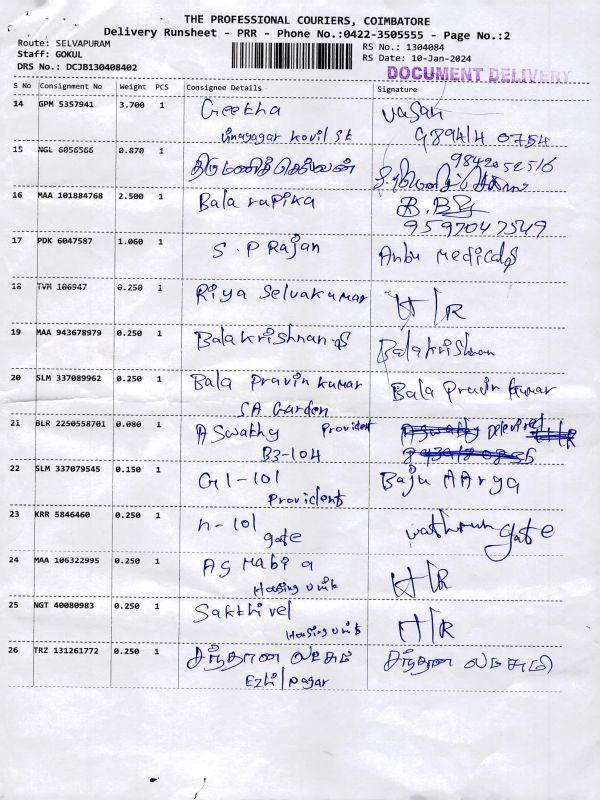 THE PROFESSIONAL COURIERS, COIMBATORE
Delivery Runsheet - PRR - Phone No.:0422-3505555 - Page No.:2
Route: SELVAPURAM
Staff: GOKUL
DRS No.: DCJB130408402
RS No.: 1304084
RS Date: 10-Jan-2024
DOCUMENT DELIVERY
S No Consignment No Weight PCS Consignee Details Signature
14 GPM 5357941 3.700 1 Geetha vasan
vinayagar kovil st 989414 0754
15 NGL 6056566 0.870 1 திருமணிச்செல்வன் 9842052516
16 MAA 101884768 2.500 1 Bala rupika
9597047549
17 PDK 6047587 1.060 1 S.P Rajan Anbu medicals
18 TVM 106947 0.250 1 Riya Selvakumar H/R
19 MAA 943678979 0.250 1 Balakrishnan.S Balakrishnan
20 SLM 337089962 0.250 1 Bala Pravin kumar Bala Pravin kumar
SA Garden
21 BLR 2250558701 0.080 1 A Swathy Provident A Swathy Delivered H/R
B3-104
22 SLM 337079545 0.150 1 G1-101 Baju AArya
Provident
23 KRR 5846460 0.250 1 n-101 gate
gate
24 MAA 106322995 0.250 1 H/R
Housing unit
25 NGT 40080983 0.250 1 Sakthivel H/R
Housing unit
26 TRZ 131261772 0.250 1 சந்தான லட்சுமி சந்தான லட்சுமி
Ezhil nagar